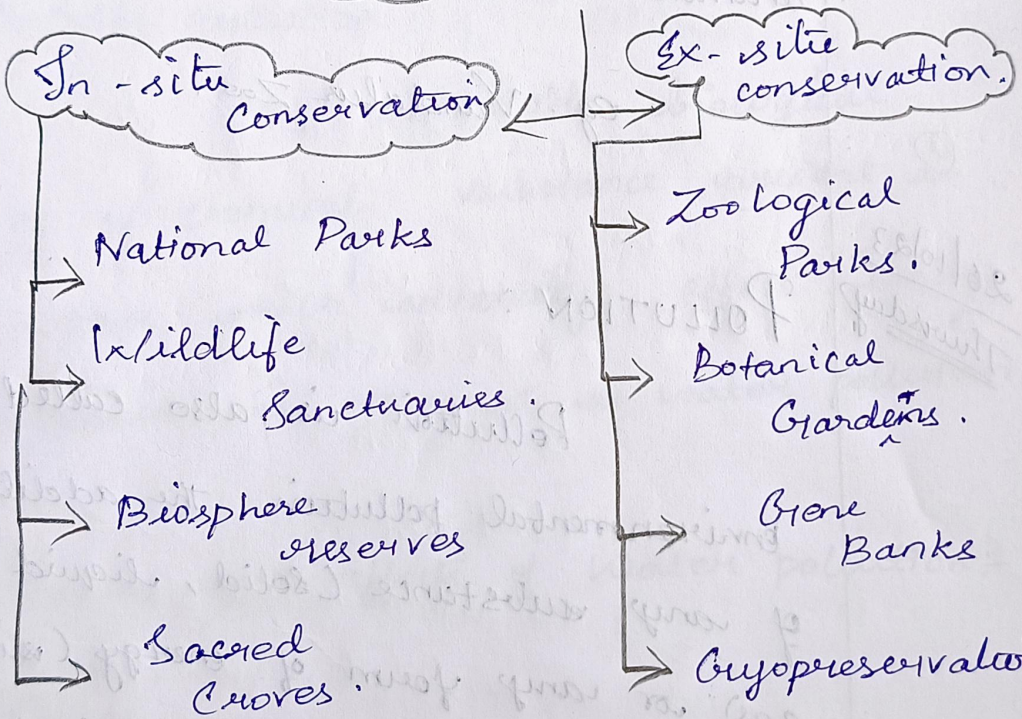 In-situ
Conservation
National Parks
Wildlife
Sanctuaries.
Biosphere
reserves
Sacred
Groves.
Ex-situ
conservation.
Zoological
Parks.
Botanical
Gardens.
Gene
Banks
Cryopreservatio